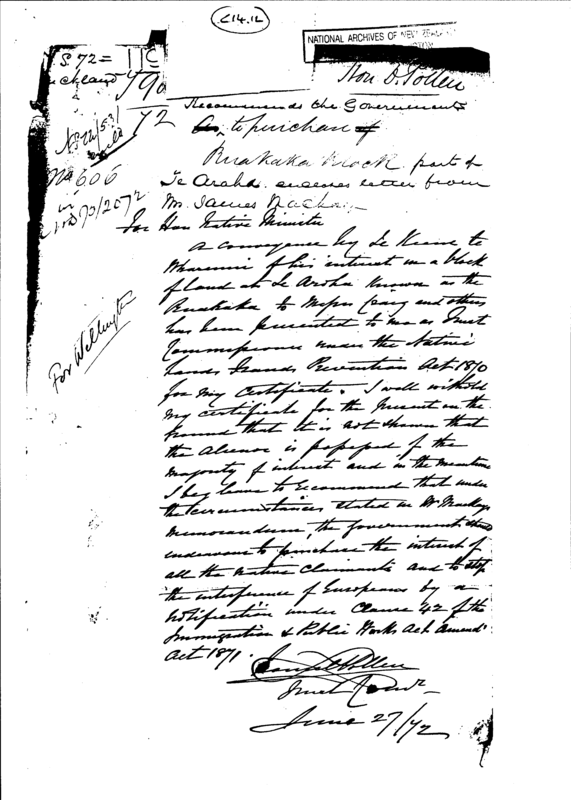 C14.12
NATIONAL ARCHIVES OF NEW ZEALAND
72
Hon D. Pollen
Recommends the Government
to purchase
Ruakaka Block part of
Te Aroha encloses letter from
Mr James Mackay
For Hon Native Minister
No 606
For Wellington
A conveyance by Te Keene te
of his interest in a block
of land at Te Aroha known as the
Ruakaka to Messrs and others
has been presented to me as Trust
Commissioner under the Native
Lands Frauds Prevention Act 1870
for my Certificate. I withhold
my certificate for the present on the
ground that it is not shown that
the alienor is possessed of the
majority of interest and in the meantime
I beg leave to recommend that under
the circumstances stated in Mr Mackays
memorandum, the Government should
endeavour to purchase the interest of
all the Native Claimants and to stop
the interference of Europeans by a
notification under Clause 42 of the
Immigration & Public Works Act Amendt
Act 1871.
Daniel Pollen
Trust Comr
June 27/72